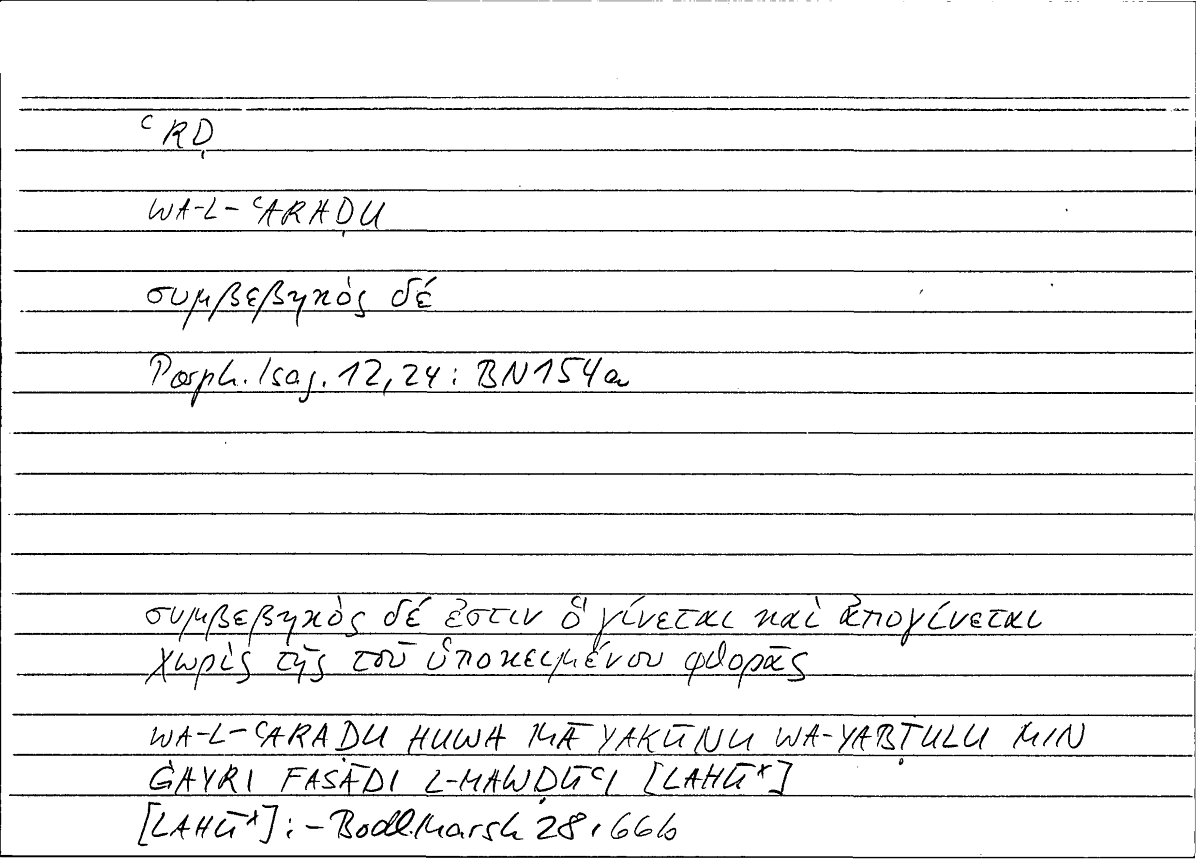 ʿRḌ
WA-L-ʿARAḌU
συμβεβηκὸς δέ
Porph. Isag. 12,24: BN154a
συμβεβηκὸς δέ ἐστιν ὃ γίνεται καὶ ἀπογίνεται
χωρὶς τῆς τοῦ ὑποκειμένου φθορᾶς
WA-L-ʿARAḌU HUWA MĀ YAKŪNU WA-YABṬULU MIN
ĠAYRI FASĀDI L-MAWḌŪʿI [LAHŪ*]
[LAHŪ*]: – Bodl. Marsh 28, 66b